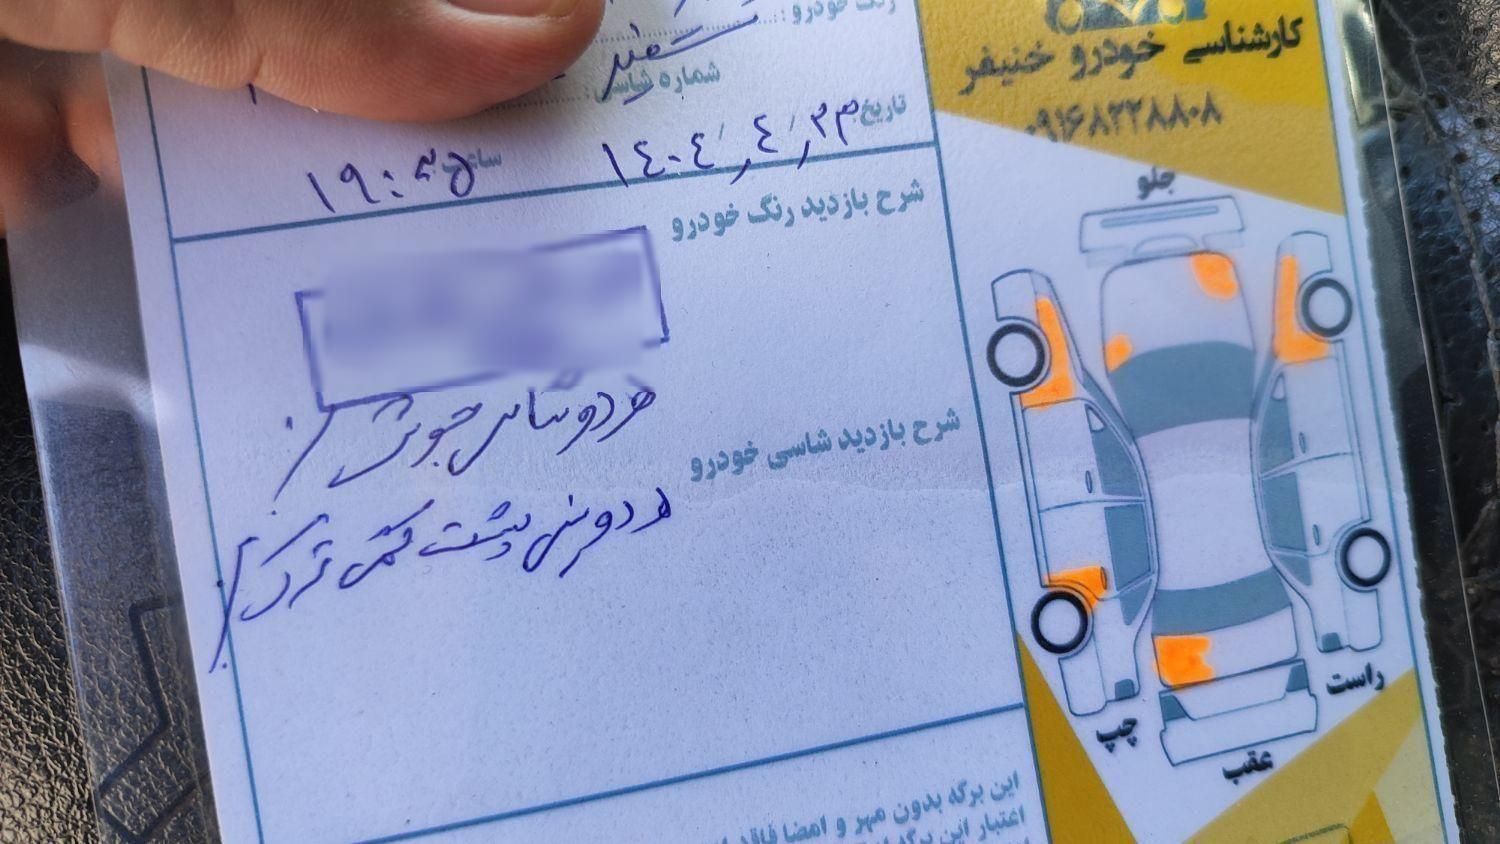 کارشناسی خودرو خنیفر
۰۹۱۶۸۲۲۸۸۰۸
رنگ خودرو :
سفید
شماره شاسی :
تاریخ ۱۴۰۴/۴/۲۳
ساعت ۱۹:۴۵
شرح بازدید رنگ خودرو
هر دو شاسی جوش
شرح بازدید شاسی خودرو
هر دو سی پشت کمی ترک
جلو
راست
چپ
عقب
این برگه بدون مهر و امضا فاقد
اعتبار این برگه